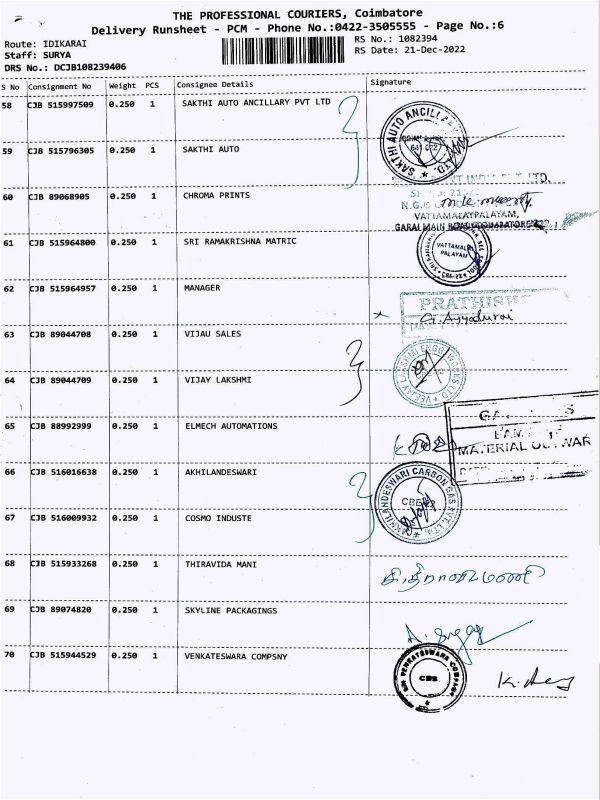 THE PROFESSIONAL COURIERS, Coimbatore
Delivery Runsheet - PCM - Phone No.:0422-3505555 - Page No.:6
Route: IDIKARAI
RS No.: 1082394
Staff: SURYA
RS Date: 21-Dec-2022
DRS No.: DCJB108239406
S No Consignment No Weight PCS Consignee Details Signature
58 CJB 515997509 0.250 1 SAKTHI AUTO ANCILLARY PVT LTD
SAKTHI AUTO ANCILLARY
59 CJB 515796305 0.250 1 SAKTHI AUTO
60 CJB 89068905 0.250 1 CHROMA PRINTS
VATTAMALAYPALAYAM,
61 CJB 515964800 0.250 1 SRI RAMAKRISHNA MATRIC
VATTAMALAI
PALAYAM
62 CJB 515964957 0.250 1 MANAGER
PRATHISH
G. Ayyadurai
63 CJB 89044708 0.250 1 VIJAU SALES
VEEJAY LAKSHMI ENGG WORKS LTD
64 CJB 89044709 0.250 1 VIJAY LAKSHMI
65 CJB 88992999 0.250 1 ELMECH AUTOMATIONS
MATERIAL
66 CJB 516016638 0.250 1 AKHILANDESWARI
AKHILANDESWARI CARBON GAS PVT. LTD.
67 CJB 516009932 0.250 1 COSMO INDUSTE
68 CJB 515933268 0.250 1 THIRAVIDA MANI
69 CJB 89074820 0.250 1 SKYLINE PACKAGINGS
70 CJB 515944529 0.250 1 VENKATESWARA COMPSNY
SRI VENKATESWARA COMPANY
CBE.